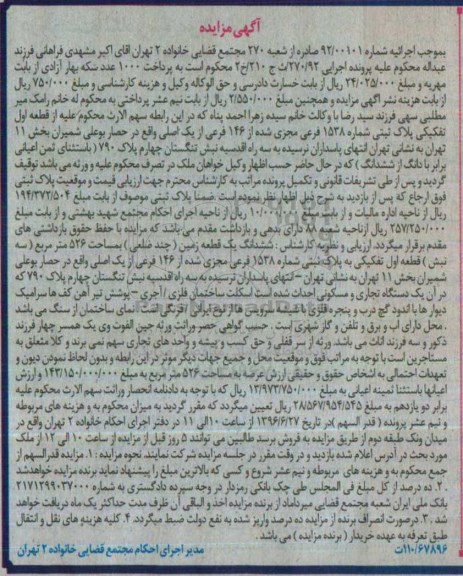 آگهی مزایده
بموجب اجرائیه شماره ۹۲/۰۰۱۰۱ صادره از شعبه ۲۷۰ مجتمع قضایی خانواده ۲ تهران آقای اکبر مشهدی فراهانی فرزند
عبداله محکوم علیه پرونده اجرایی ۲۷۰/۹۲/ث ج ۲۱۰/خ۲ محکوم است به پرداخت ۱۰۰۰ عدد سکه بهار آزادی از بابت
مهریه و مبلغ ۲۴/۰۲۵/۰۰۰ ریال از بابت خسارت دادرسی و حق الوکاله وکیل و هزینه کارشناسی و مبلغ ۷۵۰/۰۰۰ ریال
از بابت هزینه نشر آگهی مزایده و همچنین مبلغ ۲/۵۵۰/۰۰۰ ریال از بابت نیم عشر پرداختی به محکوم له خانم رامک میر
مطلبی سهی فرزند سید رضا با وکالت خانم سیده زهرا احمد پناه که در این رابطه سهم الارث محکوم علیه از قطعه اول
تفکیکی پلاک ثبتی شماره ۱۵۳۸ فرعی مجزی شده از ۱۴۶ فرعی از یک اصلی واقع در حصار بوعلی شمیران بخش ۱۱
تهران به نشانی تهران انتهای پاسداران نرسیده به سه راه اقدسیه نبش تنگستان چهارم پلاک ۷۹۰ (باستثنای ثمن اعیانی
برابر با دانگ از ششدانگ ) که در حال حاضر حسب اظهار وکیل خواهان ملک در تصرف محکوم علیه و ورثه می باشد توقیف
گردید و پس از طی تشریفات قانونی و تکمیل پرونده مراتب به کارشناس محترم جهت ارزیابی قیمت و موقعیت پلاک ثبتی
فوق ارجاع که پس از بازدید به شرح ذیل اظهار نظر نموده است ضمنا پلاک ثبتی موصوف از بابت مبلغ ۱۹۴/۳۷۲/۵۰۴
ریال از ناحیه اداره مالیات و از بابت مبلغ ۱۰/۰۰۰/۰۰۰ ریال از ناحیه اجرای احکام مجتمع شهید بهشتی و از بابت مبلغ
۲۵۷/۲۵۰/۰۰۰ ریال از ناحیه شعبه ۸۸ دارای بدهی و بازداشت مقدم می باشد که مزایده با حفظ حقوق بازداشتی های
مقدم برقرار میگردد. ارزیابی و نظریه کارشناس : ششدانگ یک قطعه زمین ( چند ضلعی ) بمساحت ۵۲۶ متر مربع ( سه
نبش ) قطعه اول تفکیکی به پلاک ثبتی شماره ۱۵۳۸ فرعی مجزی شده از ۱۴۶ فرعی از یک اصلی واقع در حصار بوعلی
شمیران بخش ۱۱ تهران به نشانی تهران – انتهای پاسداران نرسیده به سه راه اقدسیه نبش تنگستان چهارم پلاک ۷۹۰ که
در آن یک دستگاه تجاری و مسکونی احداث شده است اسکلت ساختمان فلزی / آجری – پوشش تیر آهن کف ها سرامیک
دیوار ها با اندود گچ درب و پنجره فلزی با شیشه سرویس ها از نوع ایرانی / فرنگی است نمای ساختمان از سنگ می باشد
. محل دارای آب و برق و تلفن و گاز شهری است . حسب گواهی حصر وراثت ورثه حین الفوت وی یک همسر چهار فرزند
ذکور و سه فرزند اناث می باشد. ورثه از سر قفلی و حق کسب و پیشه و واحد های تجاری سهم نمی برند و کلا متعلق به
مستاجرین است با توجه به مراتب فوق و موقعیت محل و جمیع جهات دیگر موثر در این رابطه و بدون لحاظ نمودن دیون و
تعهدات احتمالی به اشخاص حقوق و حقیقی ارزش عرصه به مساحت ۵۲۶ متر مربع به مبلغ ۱۴۳/۱۵۰/۰۰۰/۰۰۰ و ارزش
اعیانها باستثنا ثمنیه اعیانی به مبلغ ۱۳/۹۷۳/۷۵۰/۰۰۰ ریال که با توجه به دادنامه انحصار وراثت سهم الارث محکوم علیه
برابر دو یازدهم به مبلغ ۲۸/۵۶۷/۹۵۴/۵۴۵ ریال تعیین میگردد که مقرر گردید به میزان محکوم به و هزینه های مربوطه
و نیم عشر پرونده ( قدر السهم )در تاریخ ۱۳۹۶/۶/۲۷ از ساعت ۱۰ الی ۱۱ در دفتر اجرای احکام خانواده ۲ تهران واقع در
میدان ونک طبقه دوم از طریق مزایده به فروش برسد طالبین می توانند ۵ روز قبل از مزایده از ساعت ۱۰ الی ۱۲ از ملک
مورد بحث در آدرس اعلام شده بازدید و در وقت مقرر در جلسه مزایده شرکت نمایند. نحوه مزایده : ۱. مزایده قدرالسهم از
جمع محکوم به و هزینه های مربوطه و نیم عشر شروع و کسی که بالاترین مبلغ را پیشنهاد نماید برنده مزایده خواهد شد
. ۲. ده درصد از کل مبلغ فی المجلس طی چک بانکی رمزدار در وجه سپرده دادگستری به شماره ۲۱۷۱۲۹۹۰۳۷۰۰۰
بانک ملی ایران شعبه مجتمع قضایی میرداماد از برنده مزایده اخذ و الباقی آن ظرف مدت حداکثر یک ماه دریافت خواهد
شد. ۳. درصورت انصراف برنده از مزایده ده درصد واریز شده به نفع دولت ضبط میگردد. ۴. کلیه هزینه های نقل و انتقال
طبق تعرفه به عهده خریدار ( برنده مزایده ) می باشد .
۱۱۰/۶۷۸۹۶ت مدیر اجرای احکام مجتمع قضایی خانواده ۲ تهران